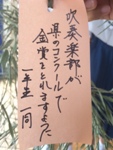 吹奏楽部が
県のコンクールで
金賞をとれますように
一年生一同